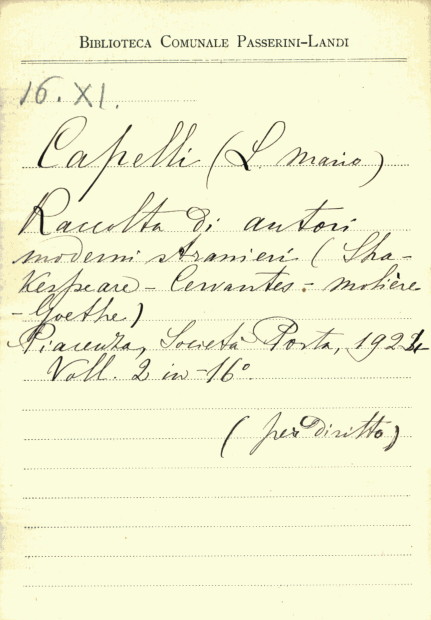 BIBLIOTECA COMUNALE PASSERINI-LANDI
16. XI.
Capelli (L. Mario)
Raccolta di autori
moderni stranieri (Sha-
kespeare - Cervantes - Molière
- Goethe)
Piacenza, Società Porta, 192
Voll. 2 in-16°.
(per diritto)